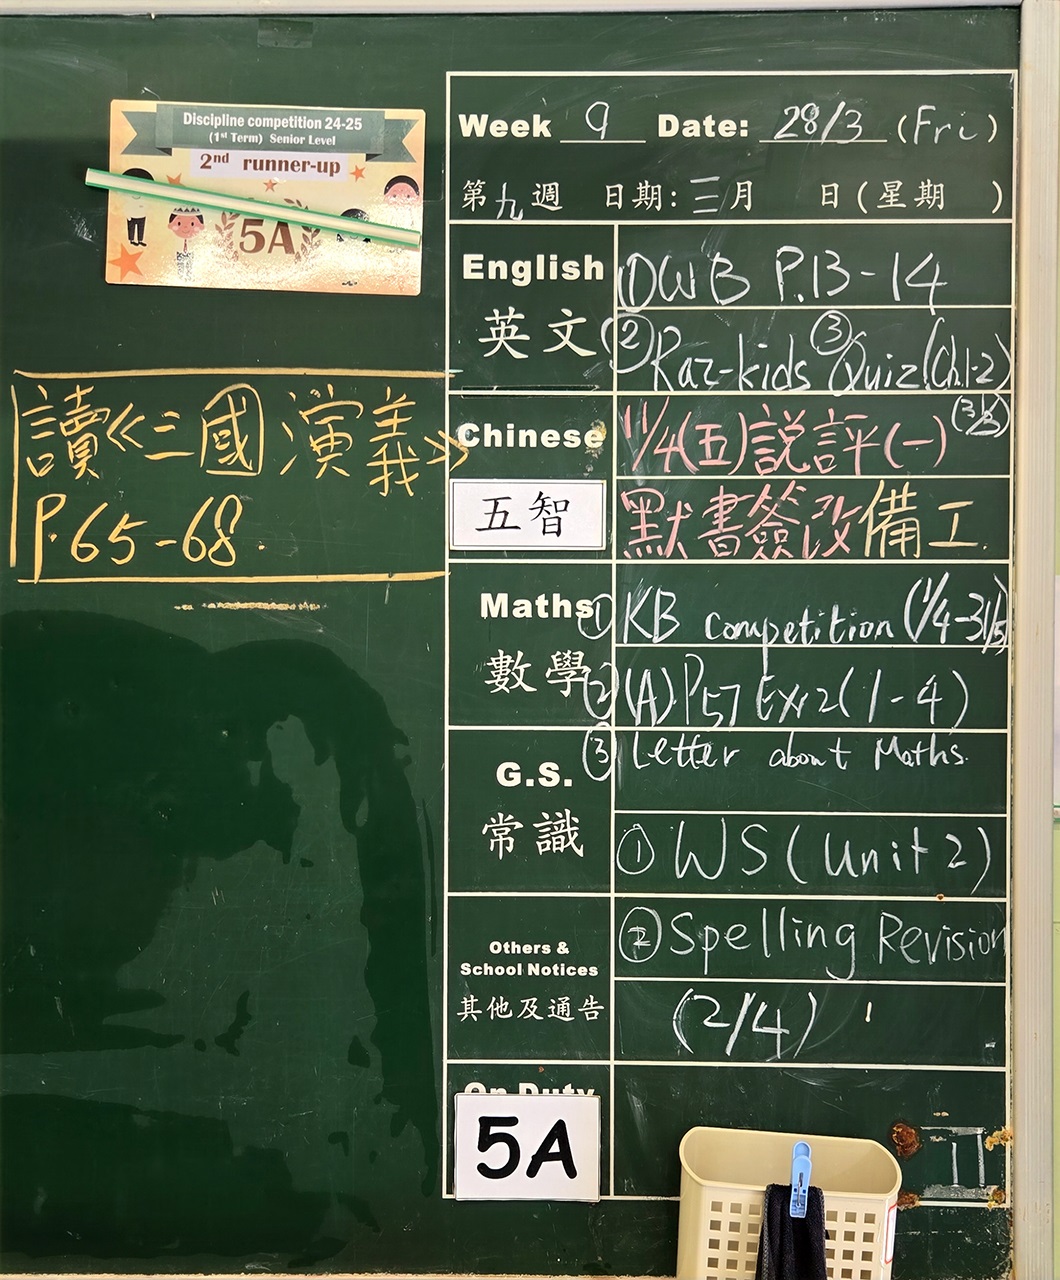 Discipline competition 24-25
(1st Term) Senior Level
2nd runner-up
5A
Week 9 Date: 28/3 (Fri)
第九週 日期: 三月 日(星期 )
English 英文
①WB P.13-14
②Raz-kids ③Quiz(Ch.1-2)
(31/3)
讀《三國演義》
P.65-68.
Chinese
五智
11/4(五)說評(一)
默書簽改備工.
Maths 數學
①KB competition (1/4-31/5)
②(A)P57 Ex2(1-4)
③Letter about Maths.
G.S. 常識
①WS(Unit 2)
②Spelling Revision
(2/4)
Others &
School Notices
其他及通告
On Duty
5A